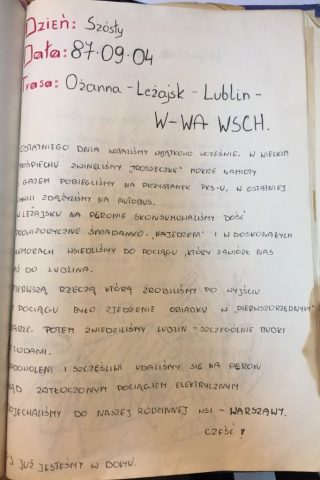 Dzień: Szósty
Data: 87.09.04
Trasa: Ożanna - Leżajsk - Lublin -
W-WA WSCH.
OSTATNIEGO DNIA WSTALIŚMY WYJĄTKOWO WCZEŚNIE. W WIELKIM
POŚPIECHU ZWINĘLIŚMY "TROSZECZKĘ" MOKRE NAMIOTY
I RAZEM POBIEGLIŚMY NA PRZYSTANEK PKS-U. W OSTATNIEJ
CHWILI ZDĄŻYLIŚMY NA AUTOBUS.
W LEŻAJSKU NA PERONIE SKONSUMOWALIŚMY DOŚĆ
PROWIZORYCZNE ŚNIADANKO. "NAJEDZENI" I W DOSKONAŁYCH
HUMORACH WSIEDLIŚMY DO POCIĄGU, KTÓRY ZAWIÓZŁ NAS
AŻ DO LUBLINA.
PIERWSZĄ RZECZĄ KTÓRĄ ZROBILIŚMY PO WYJŚCIU
Z POCIĄGU BYŁO ZJEDZENIE OBIADKU W "PIERWSZORZĘDNYM"
BARZE. POTEM ZWIEDZILIŚMY LUBLIN - SZCZEGÓLNIE BUDKI
Z LODAMI.
ZADOWOLENI I SZCZĘŚLIWI UDALIŚMY SIĘ NA PERON
SKĄD ZATŁOCZONYM POCIĄGIEM ELEKTRYCZNYM
DOJECHALIŚMY DO NASZEJ RODZINNEJ WSI - WARSZAWY.
CZEŚĆ!
JUŻ JESTEŚMY W DOMU.